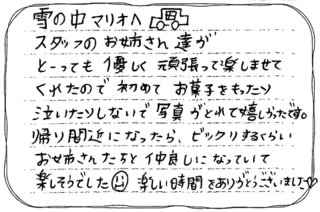 雪の中マリオへ
スタッフのお姉さん達が
とーっても優しく頑張って楽しませて
くれたので初めてお菓子をもったり
泣いたりしないで写真がとれて嬉しかったです。
帰り間近になったら、ビックリするくらい
お姉さんたちと仲良しになっていて
楽しそうでした 楽しい時間をありがとうございました♡